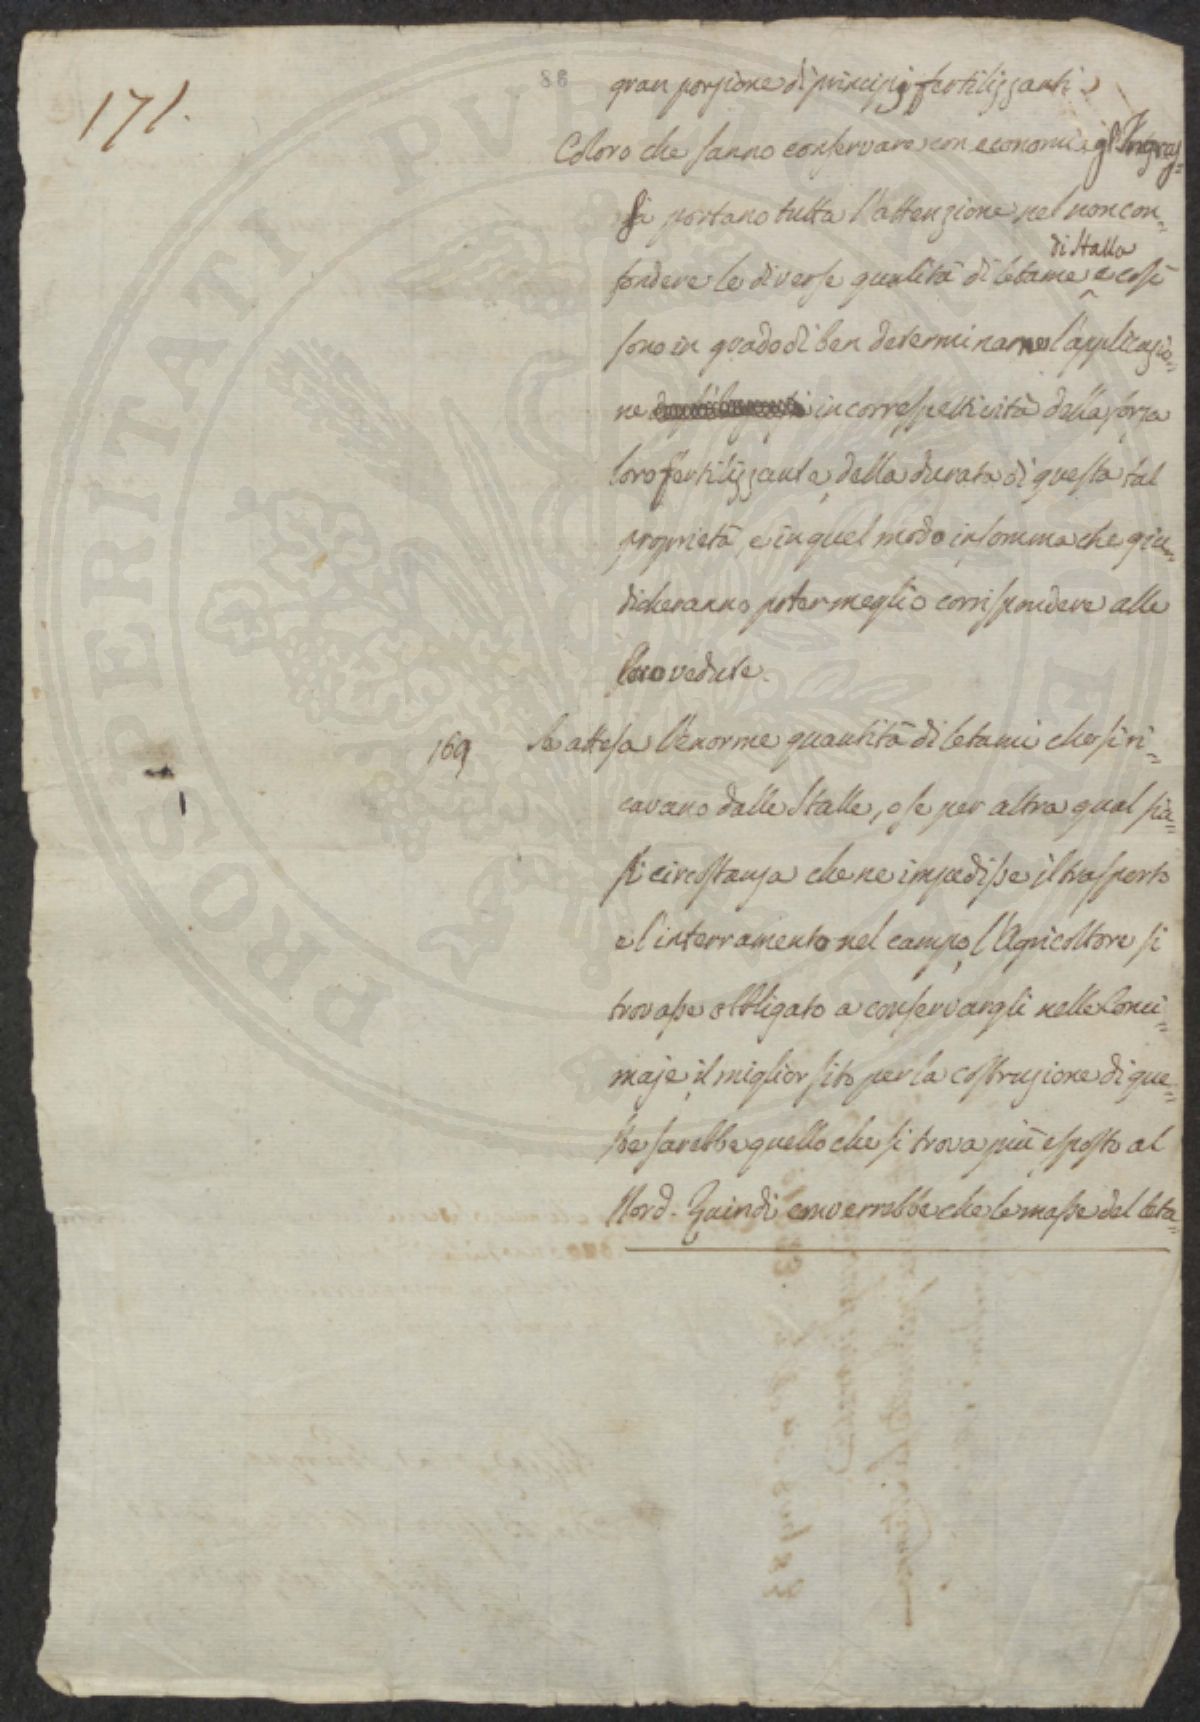 171.
gran porzione di principj fertilizzanti.
Coloro che sanno conservare con economia gl'Ingras=
si portano tutta l'attenzione nel non con=
di stalla
fondere le diverse qualità di letame e così
sono in grado di ben determinarne l'applicazio=
ne in correspettività della forza
loro fertilizzante, della durata di questa tal
proprietà, e in quel modo insomma che giu=
dicheranno poter meglio corrispondere alle
loro vedute.
169 Se attesa l'enorme quantità di letami che si ri=
cavano dalle Stalle, o se per altra qual sia=
si circostanza che ne impedisse il trasporto
e l'interramento nel campo, l'Agricoltore si
trovasse obbligato a conservargli nelle Conci=
maje, il miglior sito per la costruzione di que=
ste sarebbe quello che si trova più esposto al
Nord. Quindi converrebbe che le masse del leta=
PROSPERITATI PUBLICAE AUGENDAE